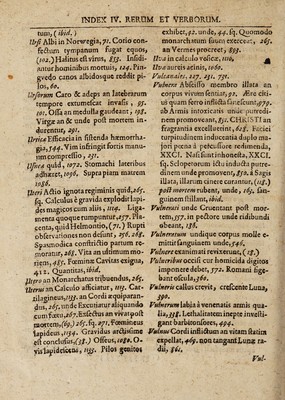 INDEX IV. RERUM ET VERBORUM.
tum, (ibid.)
Ursi Albi in Norwegia, 71. Corio con-
fectum tympanum fugat equos,
(102.) Halitus est virus, 855. Insidi-
antur hominibus mortuis, 124. Pin-
guedo canos albidosque reddit pi-
los, 60.
Ursorum Caro & adeps an latebrarum
tempore extumescat invasis, 95.
101. Ossa an medulla gaudeant,
Virgæ an & unde post mortem in-
durentur, 291.
Urtica Efficacia in sistenda hæmorrha-
gia, 594. Vim infringit fortis manu-
um compressio, 231.
Usnea quid, 1072. Stomachi lateribus
adhæret, 1096. Supra piam matrem
1086.
Uteri Actio ignota reginimis quid, 265.
sq. Calculus è gravida explodit lapi-
des magicos cum aliis, 1154. Liga-
menta quoque rumpuntur, 257. Pla-
centa, quid Helmontio, (71.) Rupti
observationes non desunt, 256. 268.
Spasmodica constrictio partum re-
moratur, 268. Vita an ultimum mo-
riens, 485. Foeminæ Cavitas exigua,
412. Quantitas, ibid.
Utero an Monarchatus tribuendus, 265.
Uterum an Calculo afficiatur, 1115. Car-
tilagineus, 1155. an Cordi æquiparan-
dus, 265. unde Excutiatur aliquando
cum foetu, 267. Exsectus an vivat post
mortem, (69.) 265. sq. 271. Foemineus
lapideus, 1154. Gravidus arctissime
est conclusus, (58.) Osseus, 1080. O-
vis lapidetiens, 1155. Pilos genitos
exhibet, 92. unde, 44. sq. Quomodo
monarchatum suum exerceat, 265.
an Vermes procreet, 895.
Uva in calculo vesicæ, 1110.
Uva aureis acinis, 1060.
Vulcanales. 227. 231. 751.
Vulnere Abscisso membro illata an
corpus vivum sentiat, 592. Aere exi-
cui quam ferro inflicta sæviente, 579.
ab Armis intoxicatis unde putredi-
nem promoveant, 851. CHRISTI an
fragrantia excelluerint, 628. Enrici
turpitudinem inducentia duplo ma-
jori pena à percussore redimenda,
XXCI. Nasi sunt inhonesta, XXCI.
sq. Scloperorum ictu inducta putre-
dinem unde promoveant, 850. à Sagis
illata, illarum cinere curantur, (115.)
post mortem rubent, unde, 165. san-
guinem stillant, ibid.
Vulneris unde Cruentant post mor-
tem, 557. in pectore unde ridibundi
obeant, 136.
Vulnerorum undique corpus molle e-
mittit sanguinem unde, 546.
Vulnera examinati revixitem, (2.)
Vulneribus occisi cur homicida digitos
imponere debet, 772. Romani fuge-
bant oscula, 360.
Vulneris callus crevit, crescente Luna,
590.
Vulnerum labia à venenatis armis qua-
lia, 558. Lethalitatem inepte investi-
gant barbitonsores, 494.
Vulnus Cordi inflictum an vitam statim
expellat, 469. non tangant Lunæ ra-
dii, 561.
Vul-